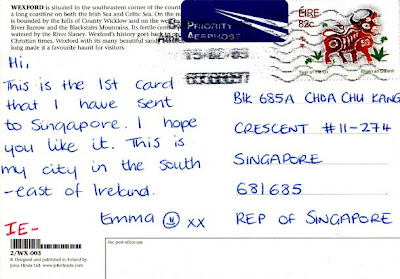 WEXFORD is situated in the southeastern corner of the country
a long coastline on both the Irish Sea and Celtic Sea. On the no
is bounded by the hills of County Wicklow and on the we
River Barrow and the Blackstairs Mountains. Its fertile cen
watered by the River Slaney. Wexford's history goes back to
Christian times. Wexford with its many beautiful sand
long made it a favourite haunt for visitors.
PRIORITY
AERPHOST
ÉIRE
82c
Year of the Ox
Hi,
This is the 1st card
that I have sent
to Singapore. I hope
you like it. This is
my city in the south
-east of Ireland.
Emma xx
BIK 685A CHOA CHU KANG
CRESCENT #11-274
SINGAPORE
681685
REP OF SINGAPORE
IE-
2/WX-003
© Designed and published in Ireland by
John Hinde Ltd.
For post office use